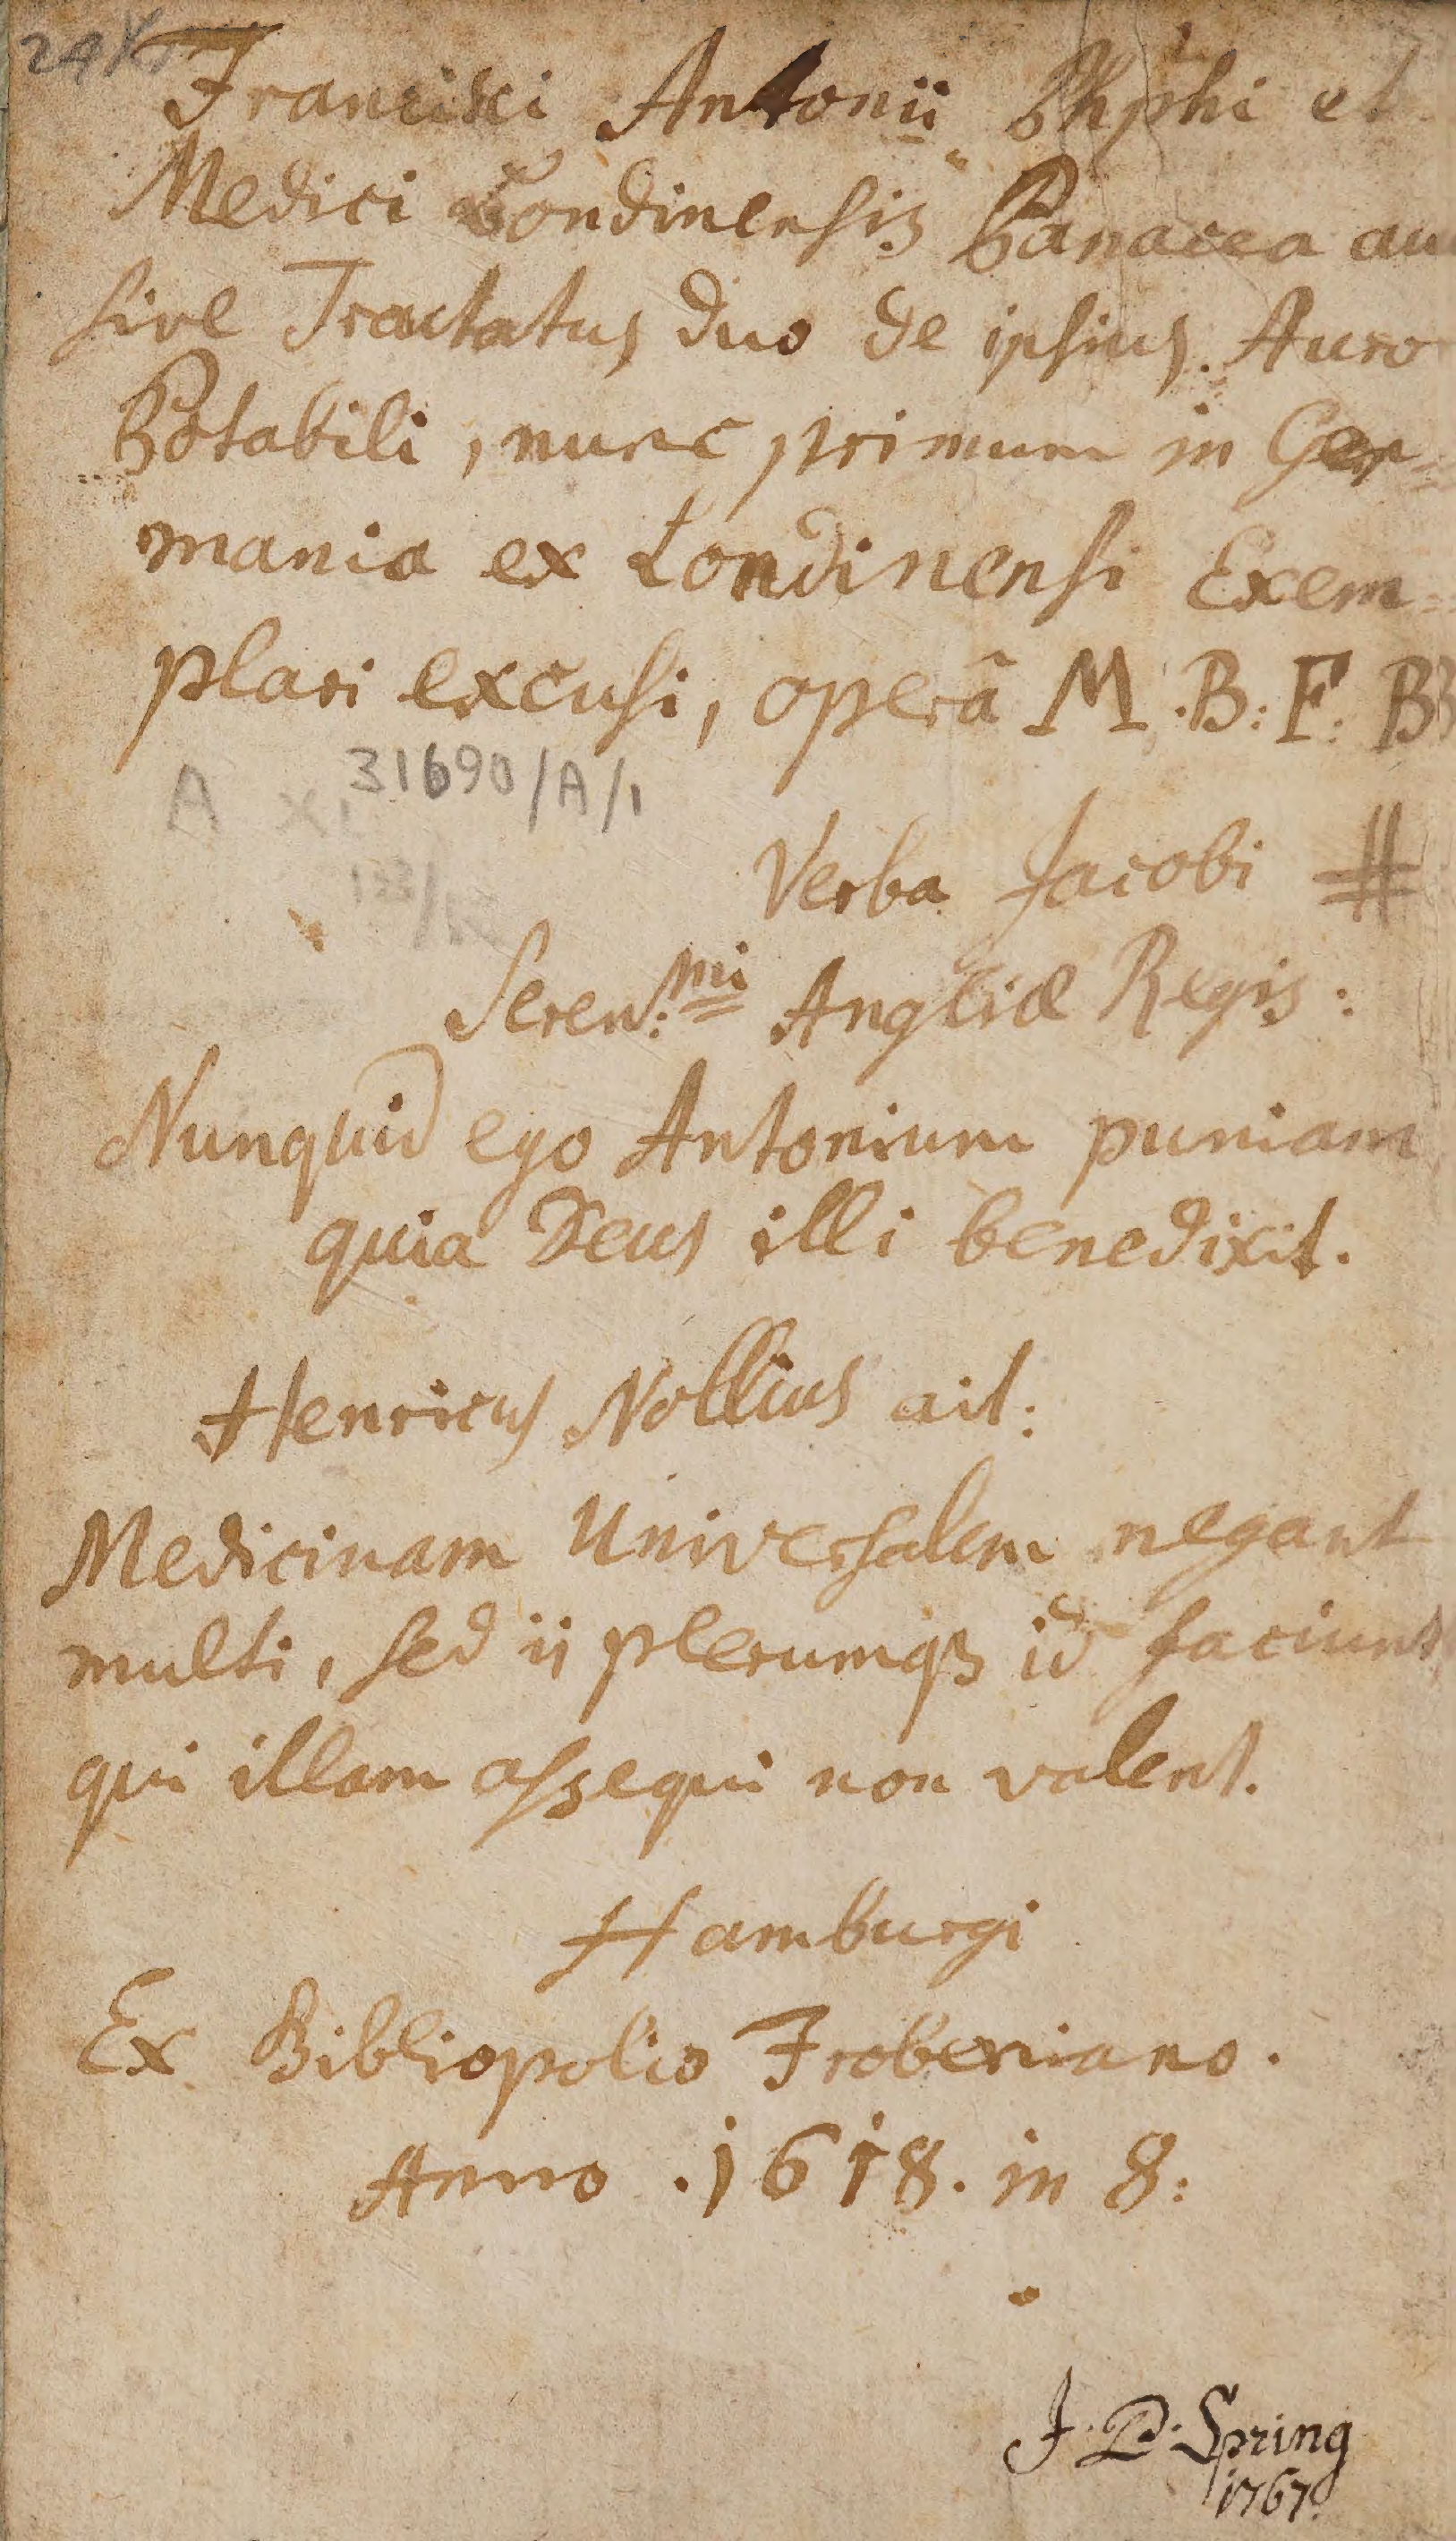 24 Kr
Francisci Antonii Phphi et
Medici Londinensis Panacea au
sive Tractatus duo de ipsius Auro
Potabili, nunc primum in Ger=
mania ex Londinensi Exem=
plari excusi, operâ M. B: F: B
A 31690/A/1
Verba Jacobi #
Seren:mi Angliæ Regis:
Nunquid ego Antonium puniam
quia Deus illi benedixit.
Henricus Nollius ait:
Medicinam Universalem negant
multi, sed ii plerumq3 id faciunt
qui illam assequi non valent.
Hamburgi
Ex Bibliopolio Frobeniano.
Anno .1618. in 8:
J. D. Spring
1767.